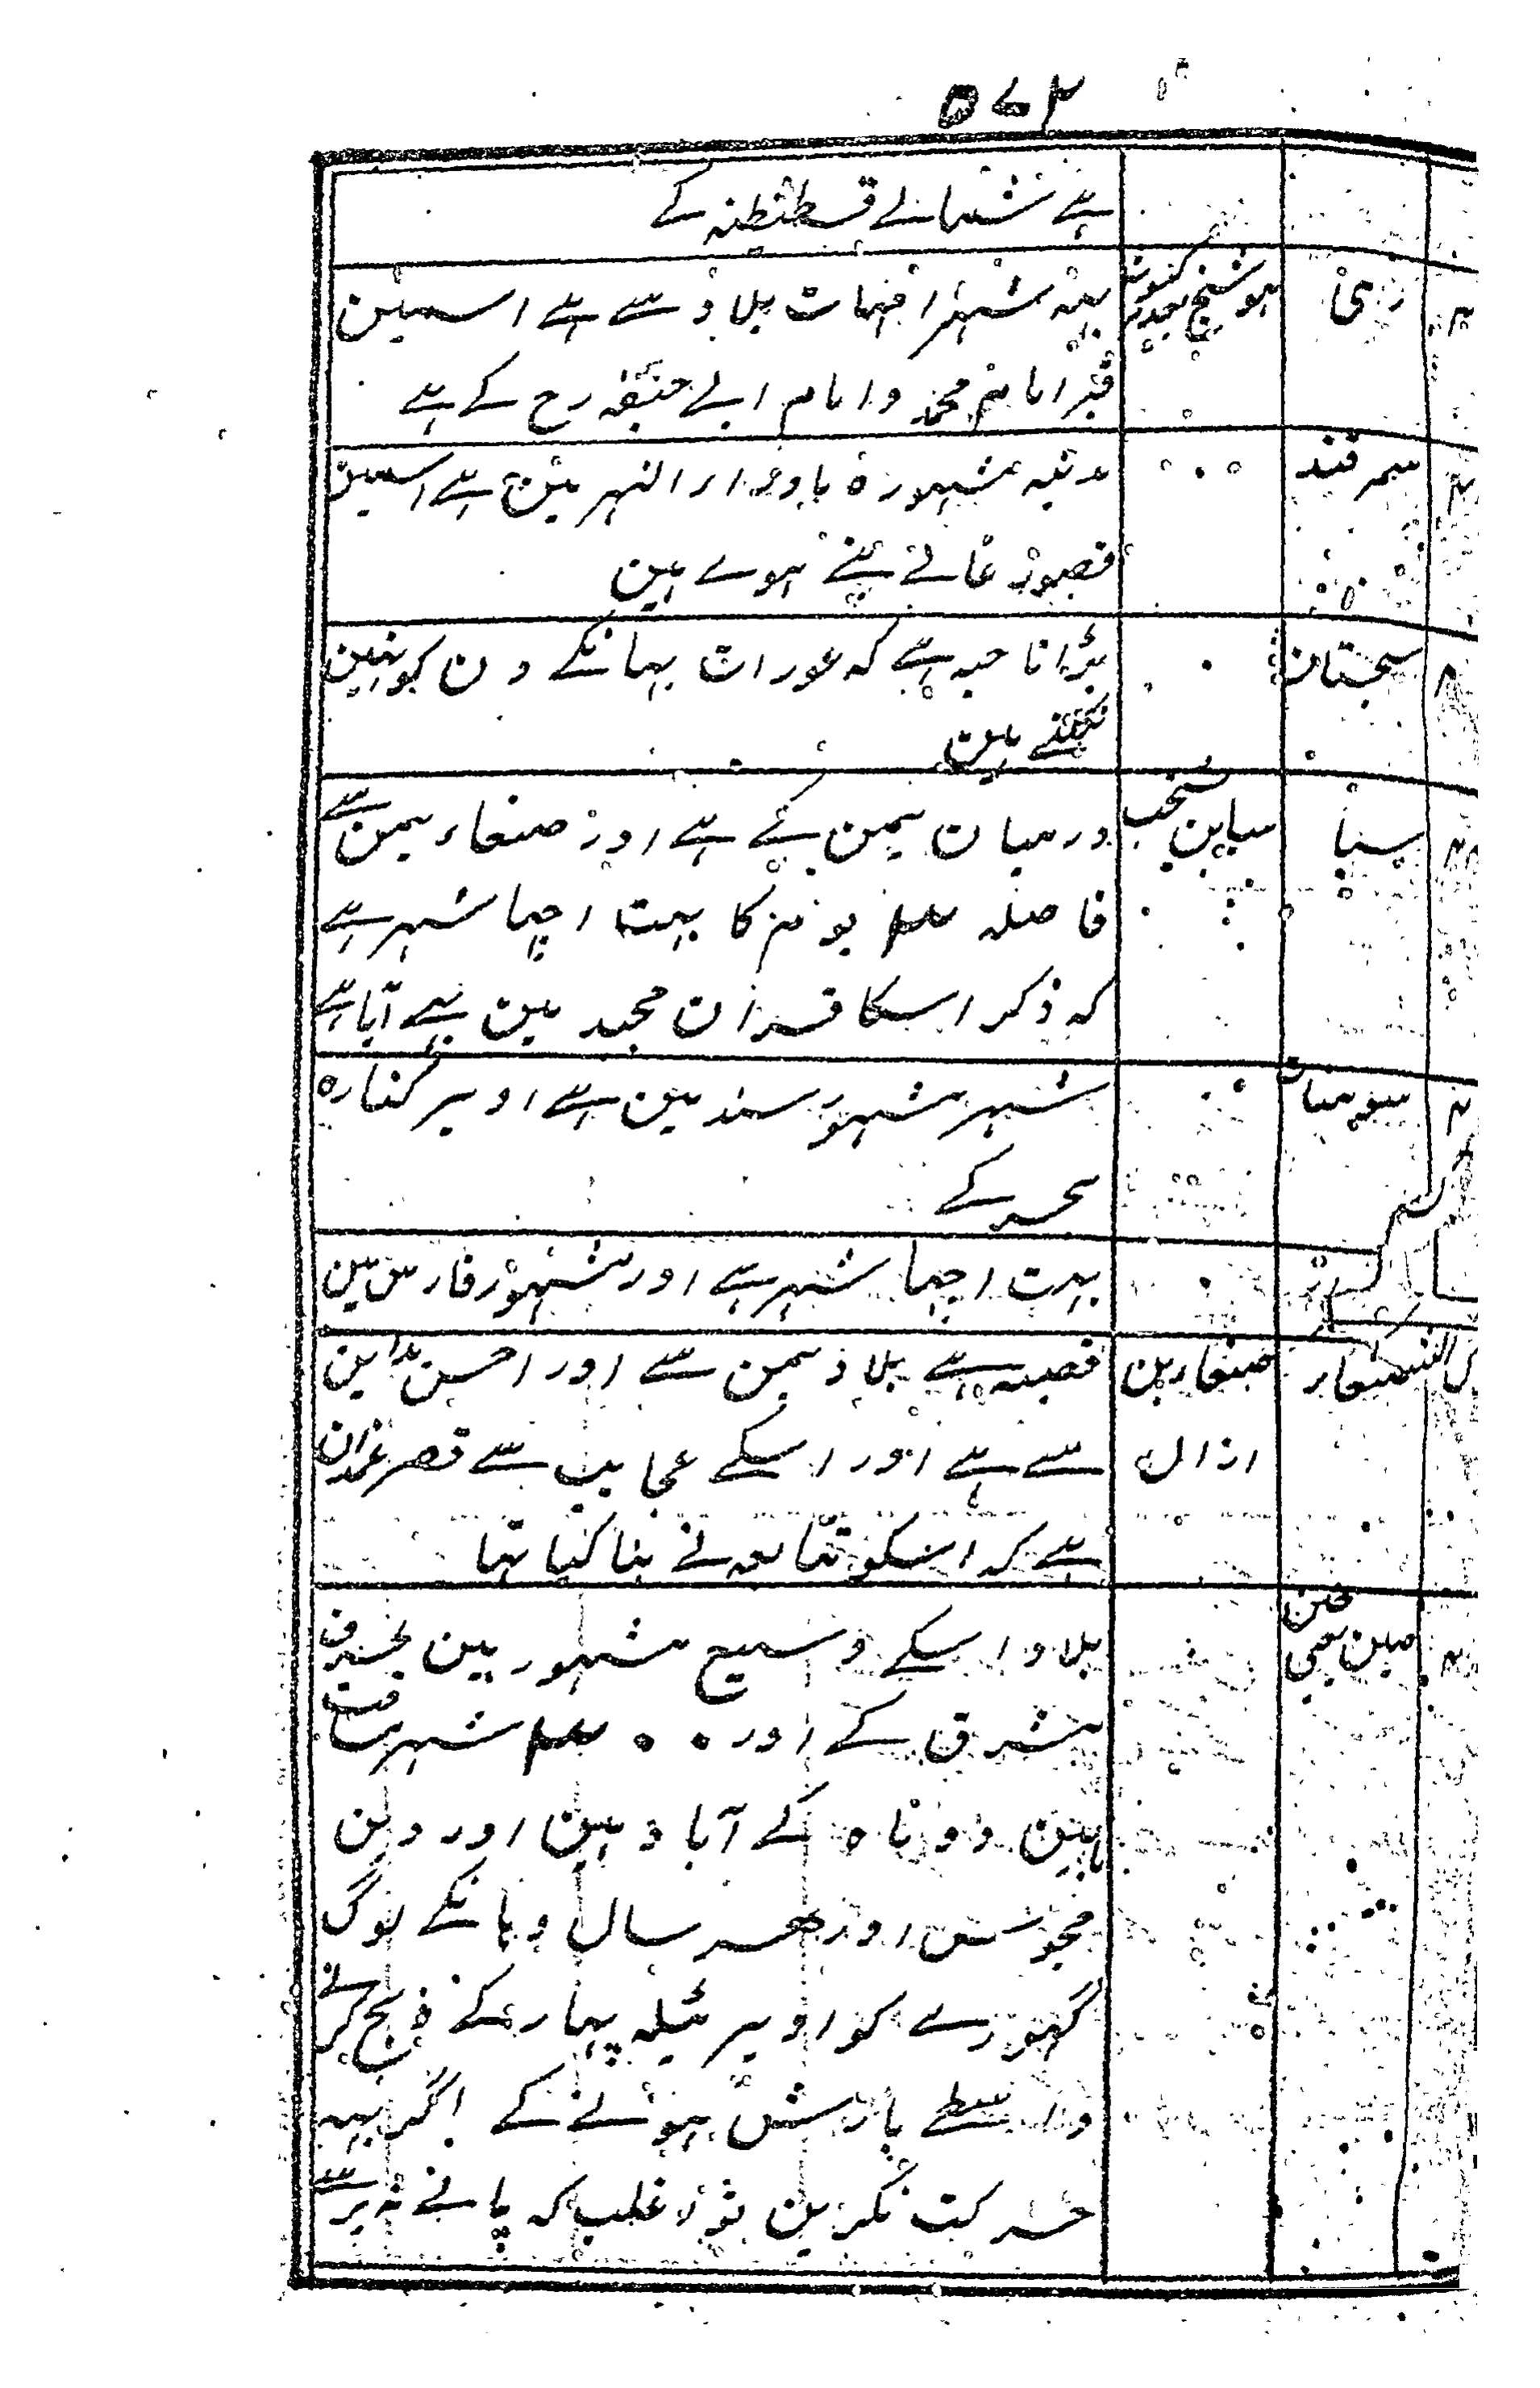 ۵۷۲
ہے شمالے قسطنطنہ کے
ری
ہوشنج بعد کیومرث
یہہ شہر امہات بلاد سے ہے اسمین
قبر امام محمد و امام ابے حنیفہ رح کے ہے
سمرقند
مدینہ مشہورہ ماوراء النہر مین ہے اسمین
قصور عالے بنے ہوے ہین
سجستان
بڑا ناحیہ ہے کہ عورات یہانکے دن کو نہین
نکلتے ہین
سبا
سبا بن یشجب
درمیان یمن کے ہے اور صنعاء یمن سے
فاصلہ ۳ یوم کا بہت اچہا شہر ہے
کہ ذکر اسکا قران مجید مین بہے آیا ہے
سومنات
شہر مشہور سند مین ہے اوپر کنارہ
بحر کے
بہت اچہا شہر ہے اور مشہور فارس مین
صنعاء
صنعا بن ازال
قصبہ ہے بلاد یمن سے اور احسن مداین
سے ہے اور اسکے عجایب سے قصر غمدان
ہے کہ اسکو تبابعہ نے بنا کیا تہا
صین یعنی چین
بلاد اسکے وسیع مشہور ہین بطرف
مشرق کے اور ۳۰۰ شہر مسافت
مین دو ماہ کے آباد ہین اور دین
مجوس اور ہر سال وہانکے لوگ
گہورے کو اوپر ٹیلہ پہار کے ذبح کرتے
واسطے بارش ہونے کے اگر یہہ
حرکت نکرین تو اغلب کہ پانے نہ برسے